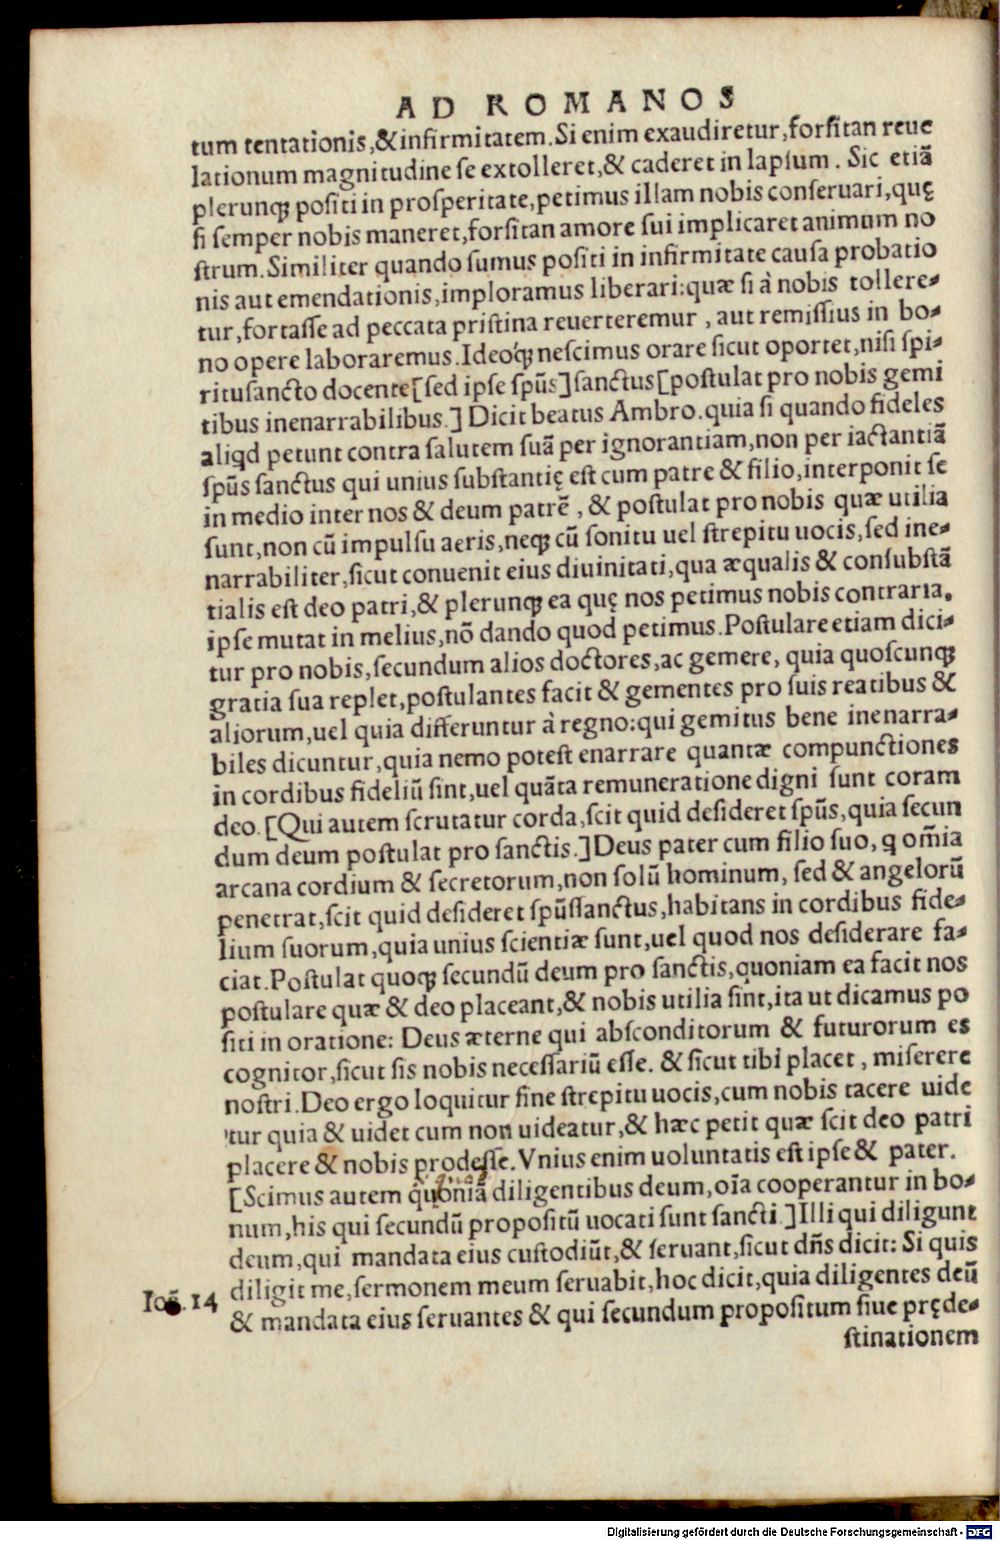 AD ROMANOS
tum tentationis,&infirmitatem.Si enim exaudiretur,forsitan reue
lationum magnitudine se extolleret,& caderet in lapsum. Sic etiã
plerunq; positi in prosperitate,petimus illam nobis conseruari,quę
si semper nobis maneret,forsitan amore sui implicaret animum no
strum.Similiter quando sumus positi in infirmitate causa probatio
nis aut emendationis,imploramus liberari:quæ si à nobis tollere-
tur,fortasse ad peccata pristina reuerteremur, aut remissius in bo-
no opere laboraremus.Ideoq́; nescimus orare sicut oportet,nisi spi-
ritusancto docente[sed ipse spũs]sanctus[postulat pro nobis gemi
tibus inenarrabilibus.] Dicit beatus Ambro.quia si quando fideles
aliqd petunt contra salutem suã per ignorantiam,non per iactantiã
spũs sanctus qui unius substantię est cum patre & filio,interponit se
in medio inter nos & deum patrẽ, & postulat pro nobis quæ utilia
sunt,non cũ impulsu aeris,neq; cũ sonitu uel strepitu uocis,sed ine-
narrabiliter,sicut conuenit eius diuinitati,qua æqualis & consubstã
tialis est deo patri,& plerunq; ea quę nos petimus nobis contraria.
ipse mutat in melius,nõ dando quod petimus.Postulare etiam dici-
tur pro nobis,secundum alios doctores,ac gemere, quia quoscunq;
gratia sua replet,postulantes facit & gementes pro suis reatibus &
aliorum,uel quia differuntur à regno:qui gemitus bene inenarra-
biles dicuntur,quia nemo potest enarrare quantæ compunctiones
in cordibus fideliũ sint,uel quãta remuneratione digni sunt coram
deo.[Qui autem scrutatur corda,scit quid desideret spũs,quia secun
dum deum postulat pro sanctis.]Deus pater cum filio suo, q om̃ia
arcana cordium & secretorum,non solũ hominum, sed & angelorũ
penetrat,scit quid desideret spũssanctus,habitans in cordibus fide-
lium suorum,quia unius scientiæ sunt,uel quod nos desiderare fa-
ciat.Postulat quoq; secundũ deum pro sanctis,quoniam ea facit nos
postulare quæ & deo placeant,& nobis utilia sint,ita ut dicamus po
siti in oratione: Deus æterne qui absconditorum & futurorum es
cognitor,sicut sis nobis necessariũ esse. & sicut tibi placet, miserere
nostri.Deo ergo loquitur sine strepitu uocis,cum nobis tacere uide
tur quia & uidet cum non uideatur,& hæc petit quæ scit deo patri
placere & nobis prodesse.Vnius enim uoluntatis est ipse & pater.
[Scimus autem quoniã diligentibus deum,oĩa cooperantur in bo-
num,his qui secundũ propositũ uocati sunt sancti.]Illi qui diligunt
deum,qui mandata eius custodiũt,& seruant,sicut dñs dicit: Si quis
Ioã. 14 diligit me,sermonem meum seruabit,hoc dicit,quia diligentes deũ
& mandata eius seruantes & qui secundum propositum siue pręde-
stinationem
Digitalisierung gefördert durch die Deutsche Forschungsgemeinschaft - DFG